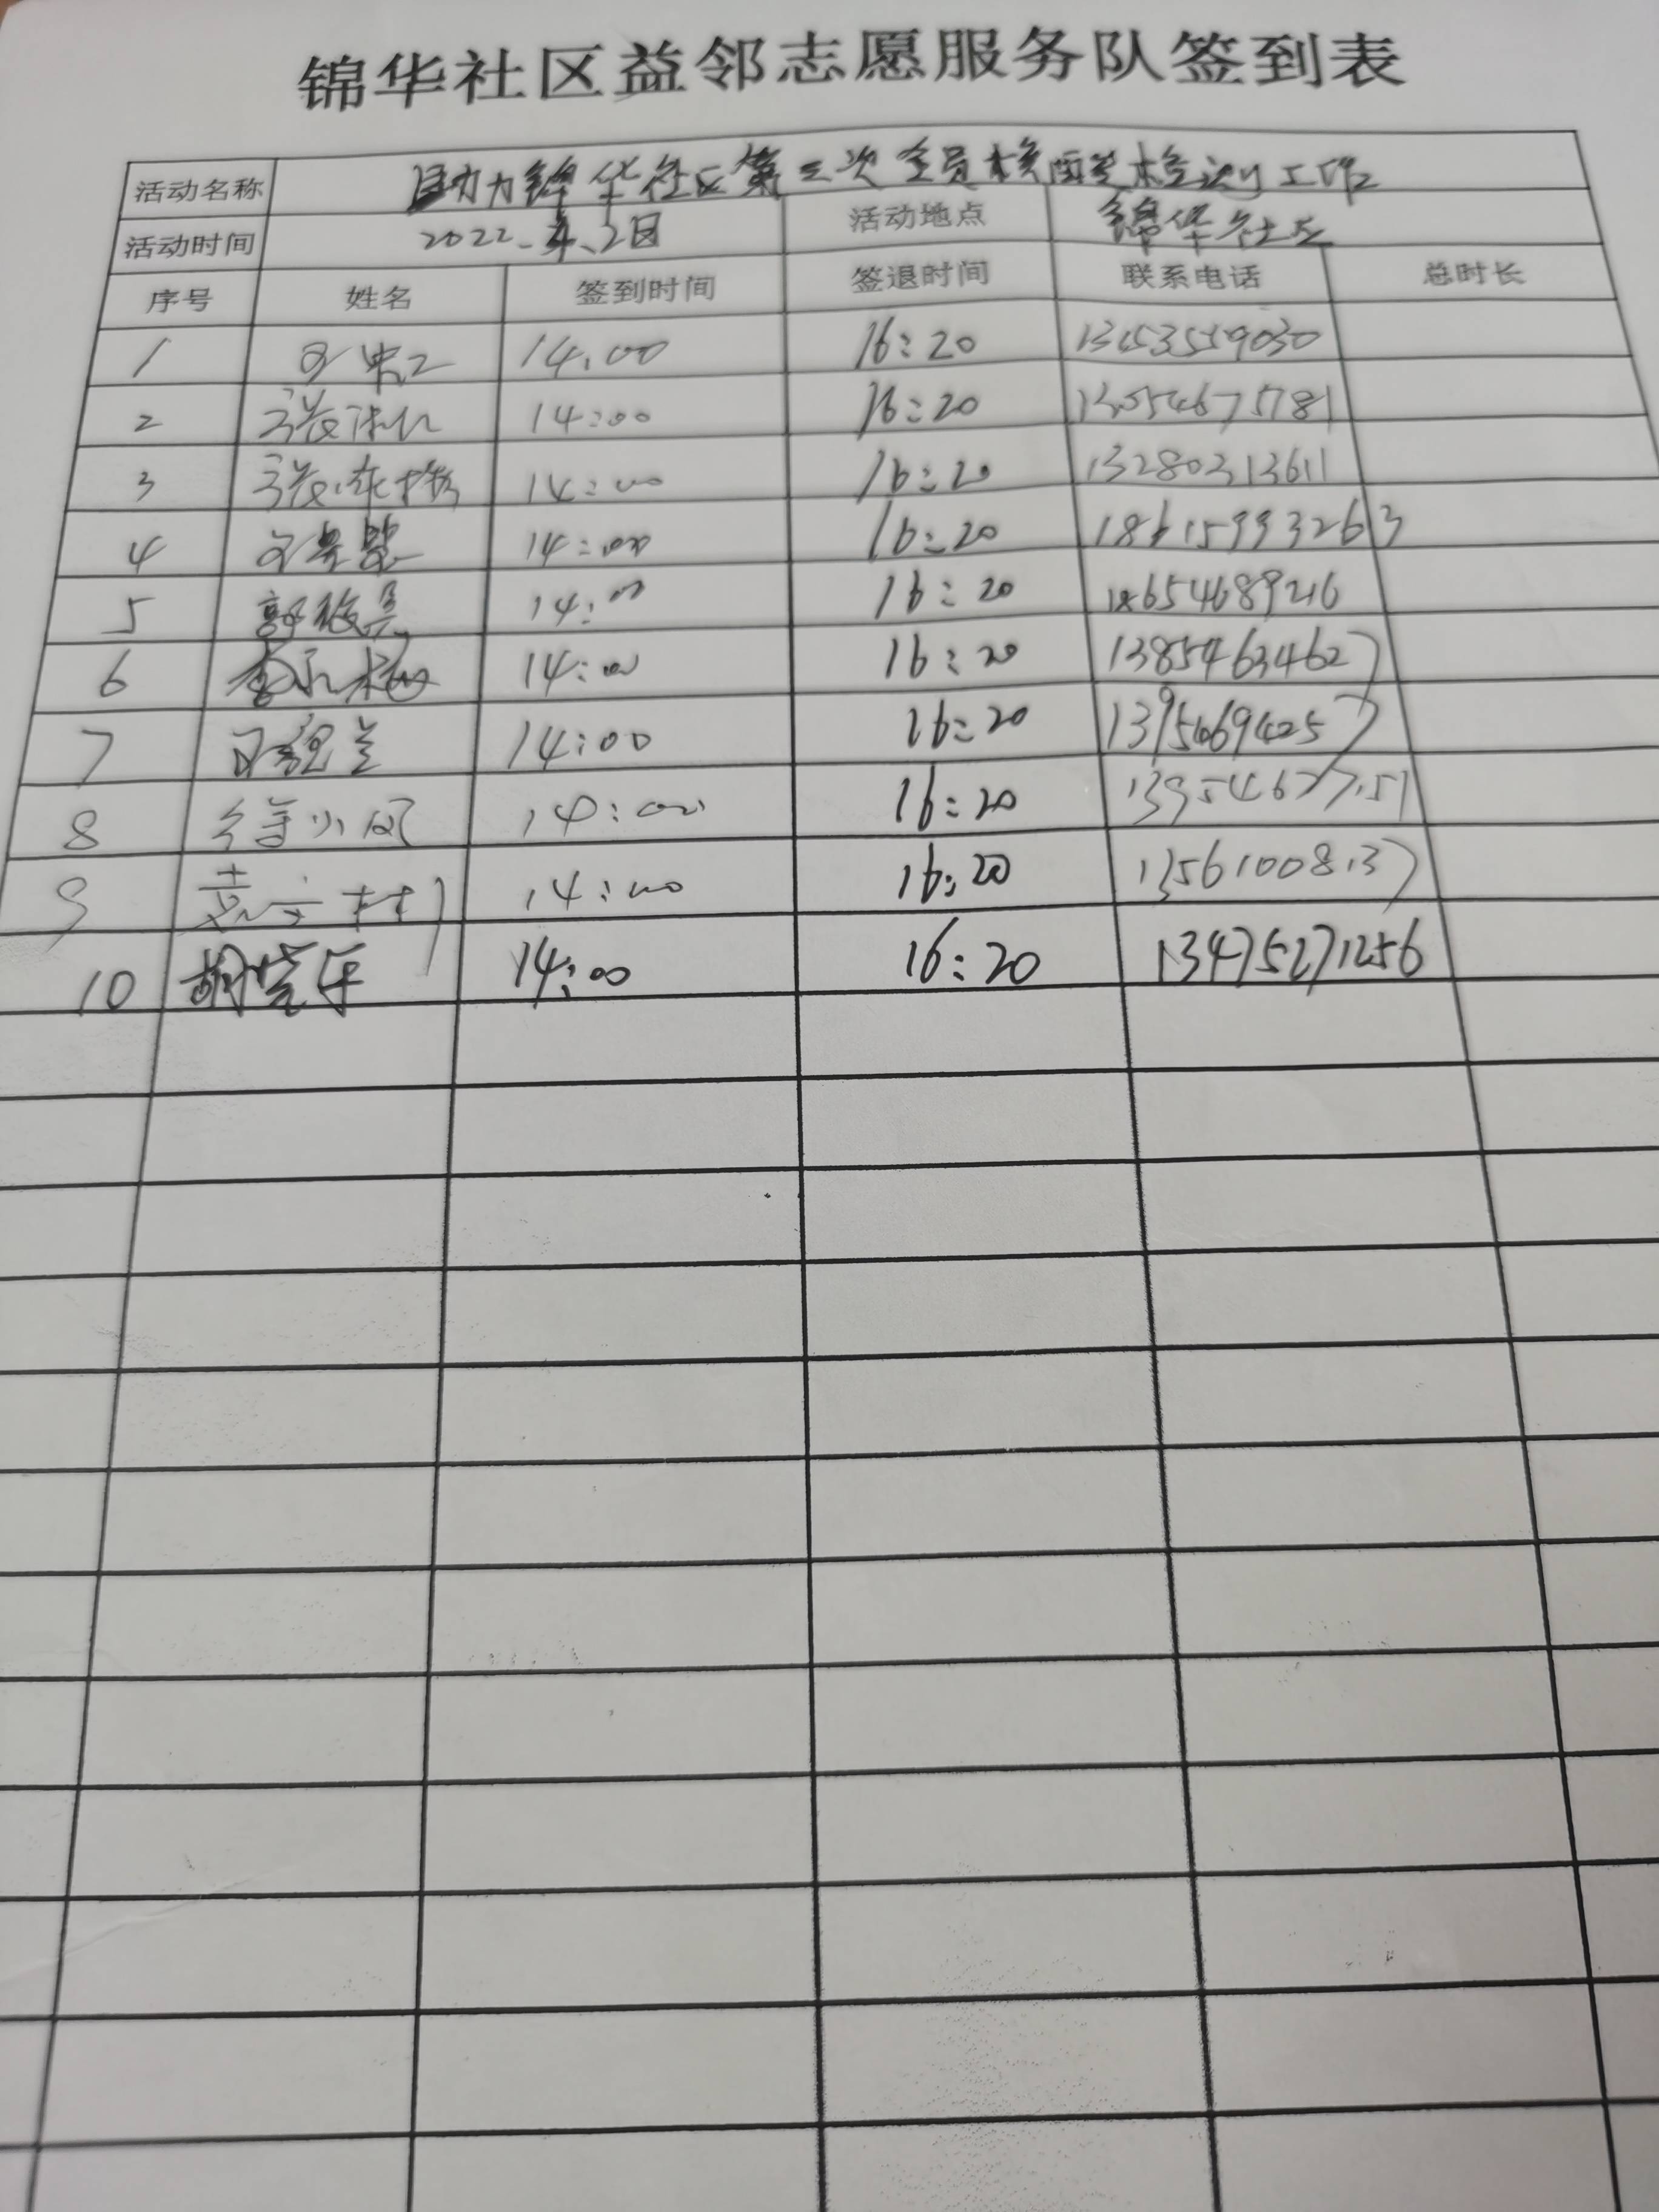 锦华社区益邻志愿服务队签到表
活动名称 助力锦华社区第三次全员核酸检测工作
活动时间 2022.4.2日 活动地点 锦华社区
序号 姓名 签到时间 签退时间 联系电话 总时长
1 14:00 16:20
2 14:00 16:20 13054675781
3 14:00 16:20 13280313611
4 14:00 16:20 18615993263
5 14:00 16:20 18654689216
6 14:00 16:20 13854634627
7 14:00 16:20
8 徐小凤 14:00 16:20 13954677151
9 14:00 16:20 13561008137
10 胡晓乐 14:00 16:20 13475271256